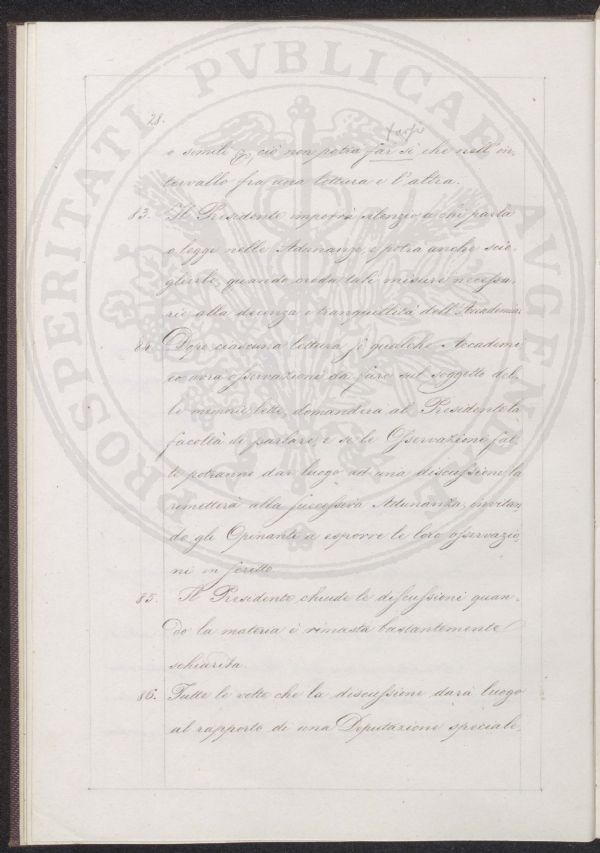 28.
farsi
o simili &, ciò non potrà far sì che nell'in,
tervallo fra una lettura e l'altra.
83. Il Presidente imporrà silenzio a chi parla
o legge nelle Adunanze, e potrà anche scio,
glierle, quando creda tali misure necessa,
rie alla decenza e tranquillità dell'Accademia.
84. Dopo ciascuna lettura se qualche Accademi
co avrà osservazioni da fare sul soggetto del,
le memorie lette, domanderà al Presidente la
facoltà di parlare, e se le Osservazioni fat,
te potranno dar luogo ad una discussione, la
rimetterà alla successiva Adunanza, invitan,
do gli Opinanti a esporre le loro osservazio,
ni in scritto.
85. Il Presidente chiude le discussioni quan,
do la materia è rimasta bastantemente
schiarita.
86. Tutte le volte che la discussione darà luogo
al rapporto di una Deputazione speciale,
PROSPERITATI PVBLICAE AVGENDAE